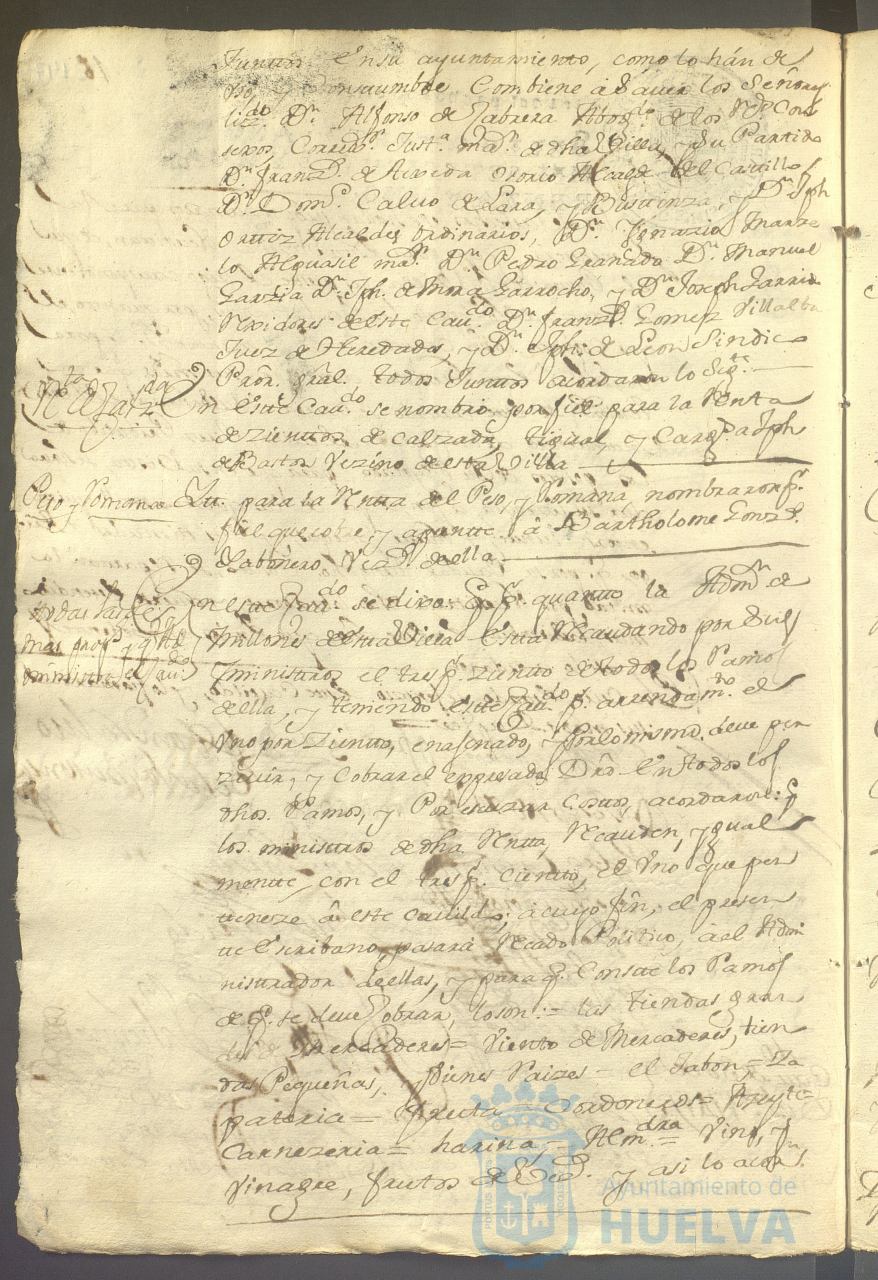 Junttos en su ayuntamiento, como lo hán de
uso, y Consttumbre, Combiene â Sauer los Señores
Lizdo. Dn. Alfonso de Cabrera Abogdo. de los Rs. Con
sexos, Corredor. Justa. mar. de dha Villa, y su Partido
Dn. Franzco. de Osorio Alcayde del Casttillo
Dn. Domo. Calvo de Lara, y Bustinza, y Dn. Jph
Orttiz Alcaldes Ordinarios, Dn. Ygnazio Marze
lo Alguasil mar. Dn. Pedro Granado Dn. Manuel
Garzia Dn. Jph. de Mora Garrocho, y Dn. Joseph Garrido
Rexidores de este Cavdo. Dn. Franzco. Gomez Villalba
Juez de Heredades, y Dn. Jph. de Leon Sindico
Pror. Gral, todos Junttos acordaron lo Sigte.
En este Cavdo. se nombro por fiel para la Rentta
de zienttos de calzada, y Carga a Jph
de Basttos Vezino de estta Villa
Peso y Romana Yt. para la Rentta de el Peso, y Romana, nombraron pr.
fiel que cobre y apuntte â Bartholome Gonzs.
Cabonero Veco. de ella
En este Cavdo. se dixo: q. pr. quanto la Admon. de
millones de estta Villa esttá Recaudando por sus
ministtros el tres pr. zientto de todos los Ramos
de ella, y teniendo este Cavdo. pr. arrendamto. el
Vno por Zientto, enaxenado, y por lo mismo, deve per
zivir, y Cobrar el expresado Dro. en todos los
dhos. Ramos, y Por escuzar Costtos, acordaron: q
los ministtros de dha Rentta, Recauden, ygual
mentte, con el tres pr. Cientto, el Vno que per
tteneze â este cavildo; a cuyo fin, el presen
te Escribano, pasará Recado Politico, â el Admi
nisttrador de ellas, y para q. Conste los Ramos
de q. se deve Cobrar, los son: = las tiendas gran
des de Mercaderes = Viento de Mercaderes, tien
das Pequeñas, Vienes Raizes = el Jabon, = Za
pateria = fructa = Cordoneros = Azeyte =
Carnezeria = harina, = Almdra. = Vino, y
Vinagre, frutos de y asi lo acorn.
Ayuntamiento de
HUELVA